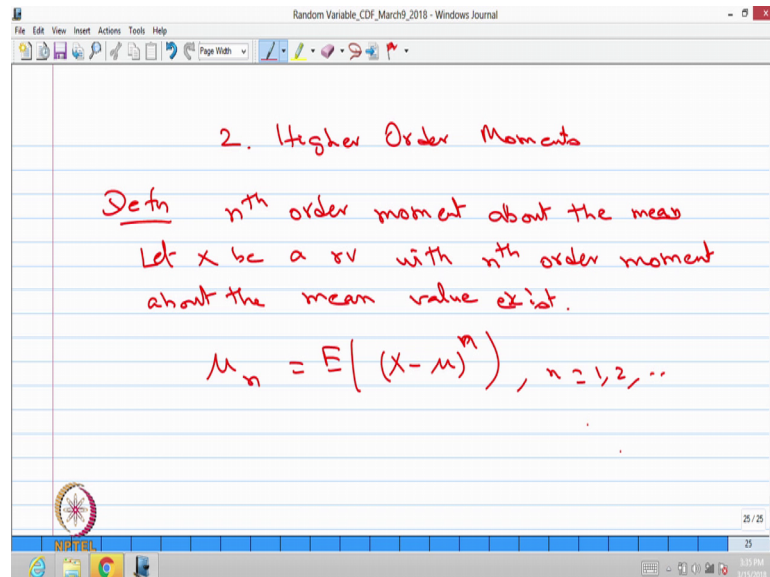 Random Variable_CDF_March9_2018 - Windows Journal
File Edit View Insert Actions Tools Help
Page Width
2. Higher Order Moments
Defn nth order moment about the mean
Let X be a rv with nth order moment
about the mean value exist.
μn = E((X-μ)^n), n = 1, 2, ..
25 / 25
NPTEL 25
5:35 PM
3/15/2018